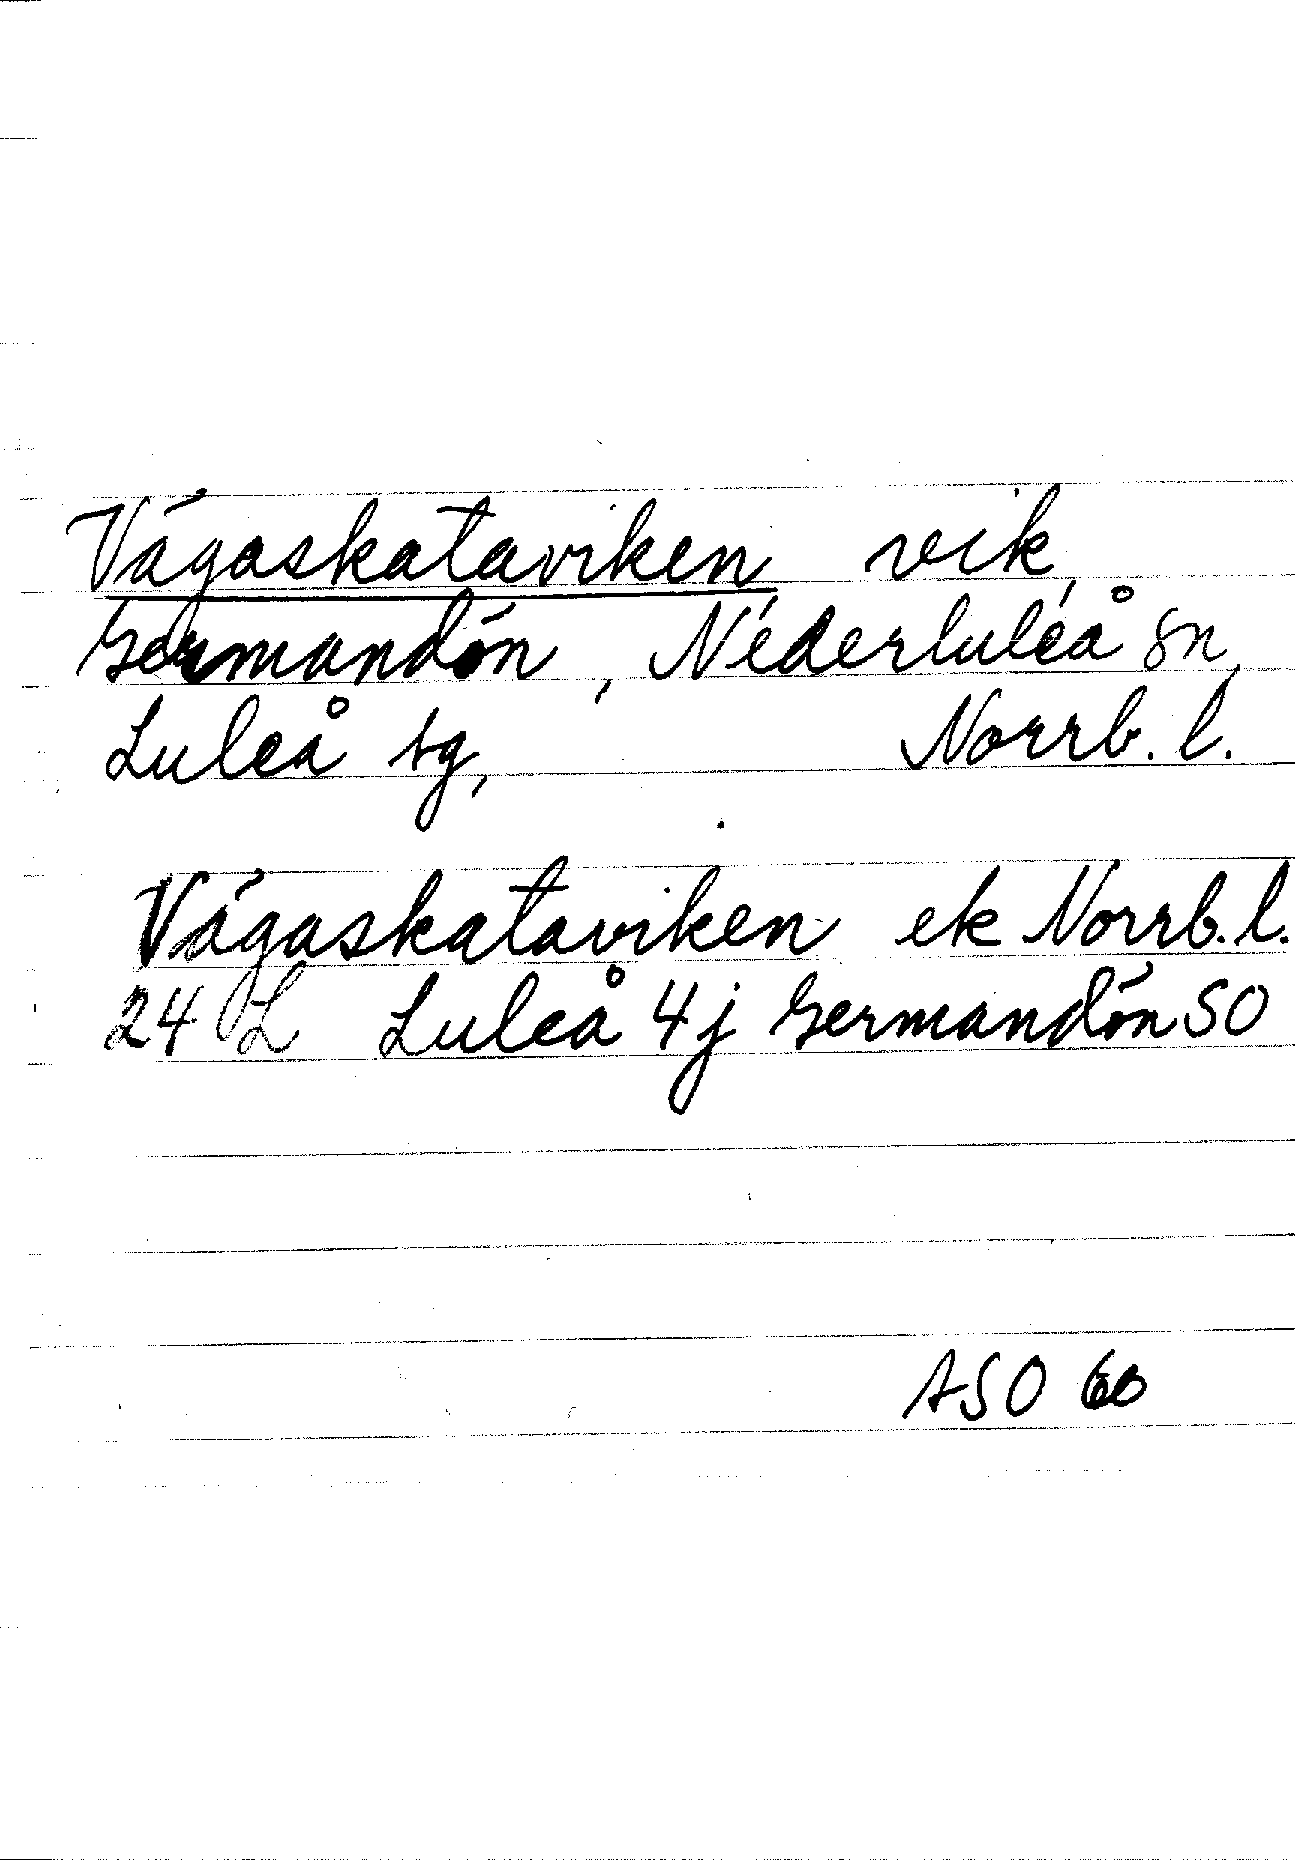 Vågaskataviken, vik,
Germandön, Nederluleå sn,
Luleå sg, Norrb. l.
Vågaskataviken ek Norrb. l.
24 L Luleå 4j Germandön SO
ASO 60